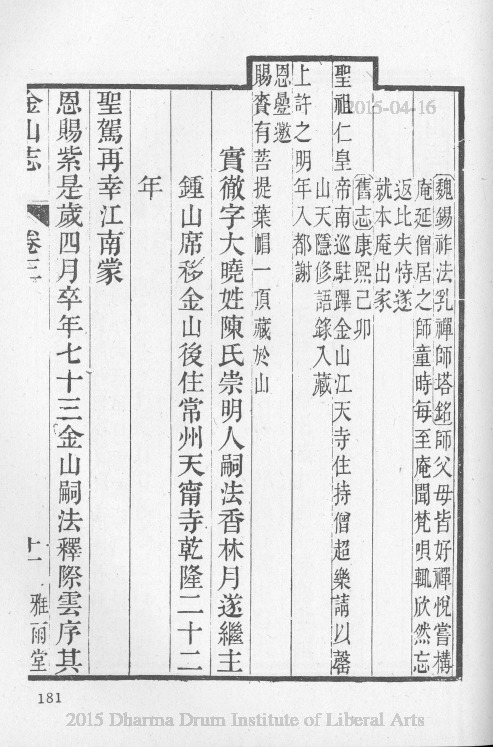 魏錫祚法乳禪師塔銘師父母皆好禪悅嘗構
庵延僧居之師童時每至庵聞梵唄輒欣然忘
返比失恃遂
就本庵出家
舊志康熙己卯
聖祖仁皇帝南巡駐蹕金山江天寺住持僧超樂請以罄
山天隱修語錄入藏
上許之明年入都謝
恩疊邀
賜賚有菩提葉帽一頂藏於山
實徹字大曉姓陳氏崇明人嗣法香林月遂繼主
鍾山席移金山後住常州天甯寺乾隆二十二
年
聖駕再幸江南蒙
恩賜紫是歲四月卒年七十三金山嗣法釋際雲序其
金山志
卷三
十一
雅雨堂
181
2015-04-16
2015 Dharma Drum Institute of Liberal Arts